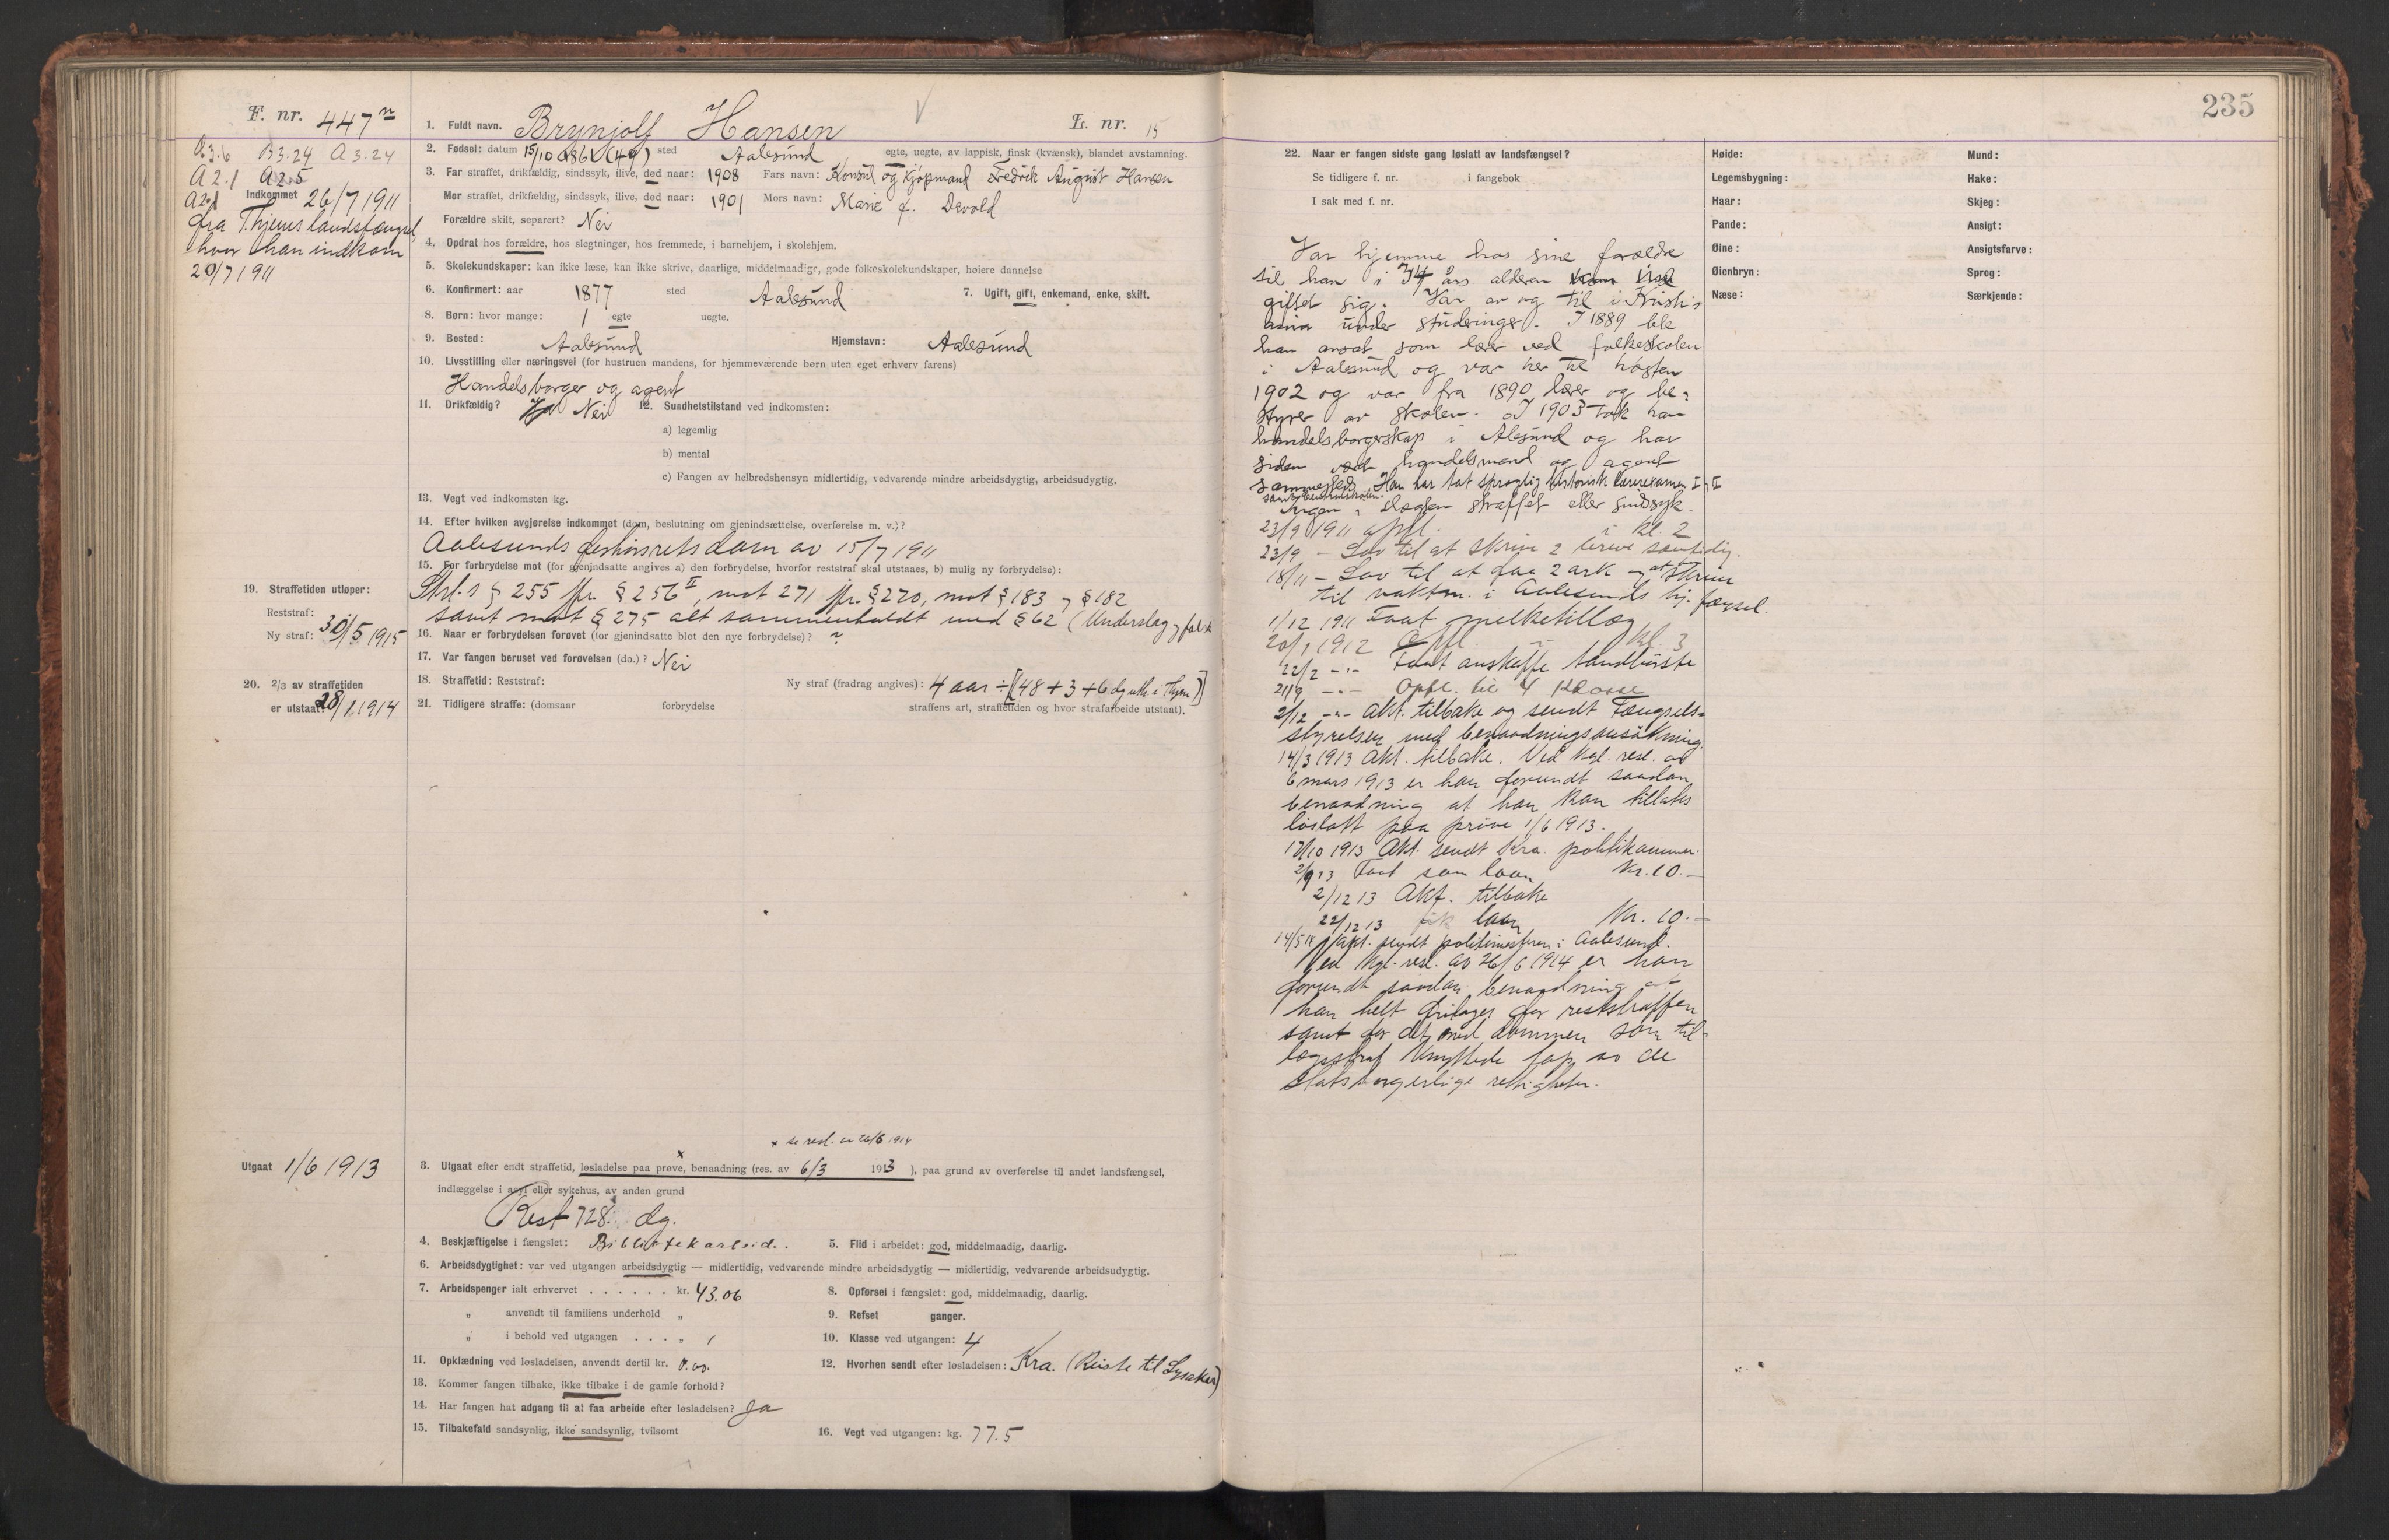 F. nr. 447
A3.6 B3.24 A3.24
A2.1 A2.5
A2.1 Indkommet 26/7 1911
fra Thjems landsfængsel,
hvor han indkom
20/7 1911
1. Fuldt navn. Brynjolf Hansen L. nr. 15
2. Fødsel: datum 15/10 1861 (49) sted Aalesund egte, uegte, av lappisk, finsk (kvænsk), blandet avstamning.
3. Far straffet, drikfældig, sindssyk, ilive, død naar: 1908 Fars navn: Konsul og kjøpmand Fedrik August Hansen
Mor straffet, drikfældig, sindssyk, ilive, død naar: 1901 Mors navn: Marie f. Devold
Forældre skilt, separert? Nei
4. Opdrat hos forældre, hos slegtninger, hos fremmede, i barnehjem, i skolehjem.
5. Skolekundskaper: kan ikke læse, kan ikke skrive, daarlige, middelmaadige, gode folkeskolekundskaper, høiere dannelse
6. Konfirmert: aar 1877 sted Aalesund 7. Ugift, gift, enkemand, enke, skilt.
8. Børn: hvor mange: 1 egte uegte.
9. Bosted: Aalesund Hjemstavn: Aalesund
10. Livsstilling eller næringsvei (for hustruen mandens, for hjemmeværende børn uten eget erhverv farens)
Handelsborger og agent
11. Drikfældig? Nei 12. Sundhetstilstand ved indkomsten:
a) legemlig
b) mental
c) Fangen av helbredshensyn midlertidig, vedvarende mindre arbeidsdygtig, arbeidsudygtig.
13. Vegt ved indkomsten kg.
14. Efter hvilken avgjørelse indkommet (dom, beslutning om gjenindsættelse, overførelse m. v.)?
Aalesunds forhørsrets dom av 15/7 1911
15. For forbrydelse mot (for gjenindsatte angives a) den forbrydelse, hvorfor reststraf skal utstaaes, b) mulig ny forbrydelse):
Strl.s § 255 jfr. § 256 II, mot 271 jfr. § 270, mot § 183 og § 182
samt mot § 275 alt sammenholdt med § 62 (Underslag og falsk
19. Straffetiden utløper:
Reststraf:
Ny straf: 30/5 1915
16. Naar er forbrydelsen forøvet (for gjenindsatte blot den nye forbrydelse)? ?
17. Var fangen beruset ved forøvelsen (do.)? Nei
20. 2/3 av straffetiden
er utstaat: 28/1 1914
18. Straffetid: Reststraf: Ny straf (fradrag angives): 4 aar ÷ [(48 + 3 + 6 dg uth. i Thjem)]
21. Tidligere straffe: (domsaar forbrydelse straffens art, straffetiden og hvor strafarbeide utstaat).
x se resl. av 26/6 1914
Utgaat 1/6 1913
3. Utgaat efter endt straffetid, løsladelse paa prøve, benaadning (res. av 6/3 1913), paa grund av overførelse til andet landsfængsel,
indlæggelse i asyl eller sykehus, av anden grund
Rest 728 dg.
4. Beskjæftigelse i fængslet: Bibliotekarbeid. 5. Flid i arbeidet: god, middelmaadig, daarlig.
6. Arbeidsdygtighet: var ved utgangen arbeidsdygtig — midlertidig, vedvarende mindre arbeidsdygtig — midlertidig, vedvarende arbeidsudygtig.
7. Arbeidspenger ialt erhvervet . . . . . . kr. 43.06 8. Opførsel i fængslet: god, middelmaadig, daarlig.
„ anvendt til familiens underhold „ 9. Refset ganger.
„ i behold ved utgangen . . . „ 10. Klasse ved utgangen: 4
11. Opklædning ved løsladelsen, anvendt dertil kr. 12. Hvorhen sendt efter løsladelsen: Kra. (Reiste til Lysaker)
13. Kommer fangen tilbake, ikke tilbake i de gamle forhold?
14. Har fangen hat adgang til at faa arbeide efter løsladelsen? Ja
15. Tilbakefald sandsynlig, ikke sandsynlig, tvilsomt 16. Vegt ved utgangen: kg. 77.5
235
22. Naar er fangen sidste gang løslatt av landsfængsel?
Se tidligere f. nr. i fangebok
I sak med f. nr.
Høide: Mund:
Legemsbygning: Hake:
Haar: Skjeg:
Pande: Ansigt:
Øine: Ansigtsfarve:
Øienbryn: Sprog:
Næse: Særkjende:
Var hjemme hos sine forældre
til han i 34 års alderen
giftet sig. Var av og til i Kristi-
ania under studeringer. I 1889 ble
han ansat som lærer ved folkeskolen
i Aalesund og var her til høsten
1902 og var fra 1890 lærer og be-
styrer av skolen. I 1903 tok han
handelsborgerskap i Ålesund og har
siden været handelsmand og agent
sammesteds. Han har tat sproglig historisk lærerexamen I og II
Ingen i slegten straffet eller sindssyk.
23/9 1911 opfl. i kl. 2
23/9 — Lov til at skrive 2 breve samtidig.
18/11 — Lov til at faa 2 ark og at skrive
til vaktm. i Aalesunds hj. fængsel.
1/12 1911 Faat melketillæg
20/1 1912 Opfl. - kl. 3
22/2 -"- Faat anskaffe tandbørste
21/9 -"- Opfl. til 4 klasse
2/12 -"- Akt. tilbake og sendt Fængsels-
styrelsen med benaadningsansøkning.
14/3 1913 Akt. tilbake. Ved kgl. resl. av
6 mars 1913 er han forundt saadan
benaadning at han kan tillates
løslatt paa prøve 1/6 1913.
17/10 1913 Akt. sendt Kra. politikammer.
2/9 13 Faat som laan Kr. 10.—
2/12 13 Akt. tilbake
22/12 13 fik laan Kr. 10.—
14/5 14 Akt. sendt politimesteren i Aalesund.
Ved kgl. resl. av 26/6 1914 er han
forundt saadan benaadning at
han helt fritages for reststraffen
samt for det med dommen som til-
lægsstraf knyttede tap av de
statsborgerlige rettigheter.